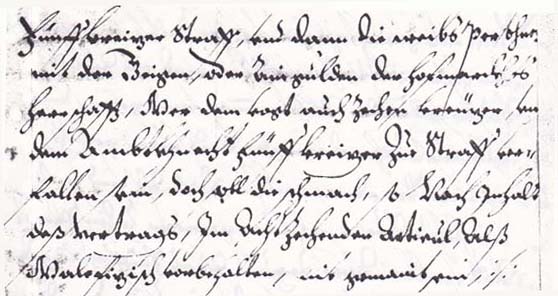 Fünff kreizer Straff, und dann die weibs Persohn
mit der Geigen, oder ain gulden der hofmarchs
herrschafft, Mer dem vogt auch zechen kreizer, und
dem Ambtknecht fünff kreizer Zue Straff ver-
fallen sein, doch soll die schmach, so Nach Inhalt
deß vertrags, Im Achtzechenden Articul, Alß
Malefizisch vorbehalten, nit gemaint sein